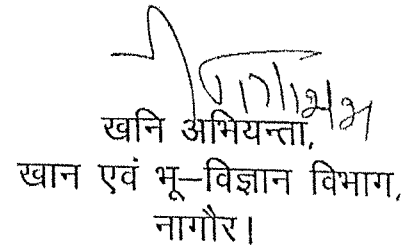 खनि अभियन्ता,
खान एवं भू–विज्ञान विभाग,
नागौर।